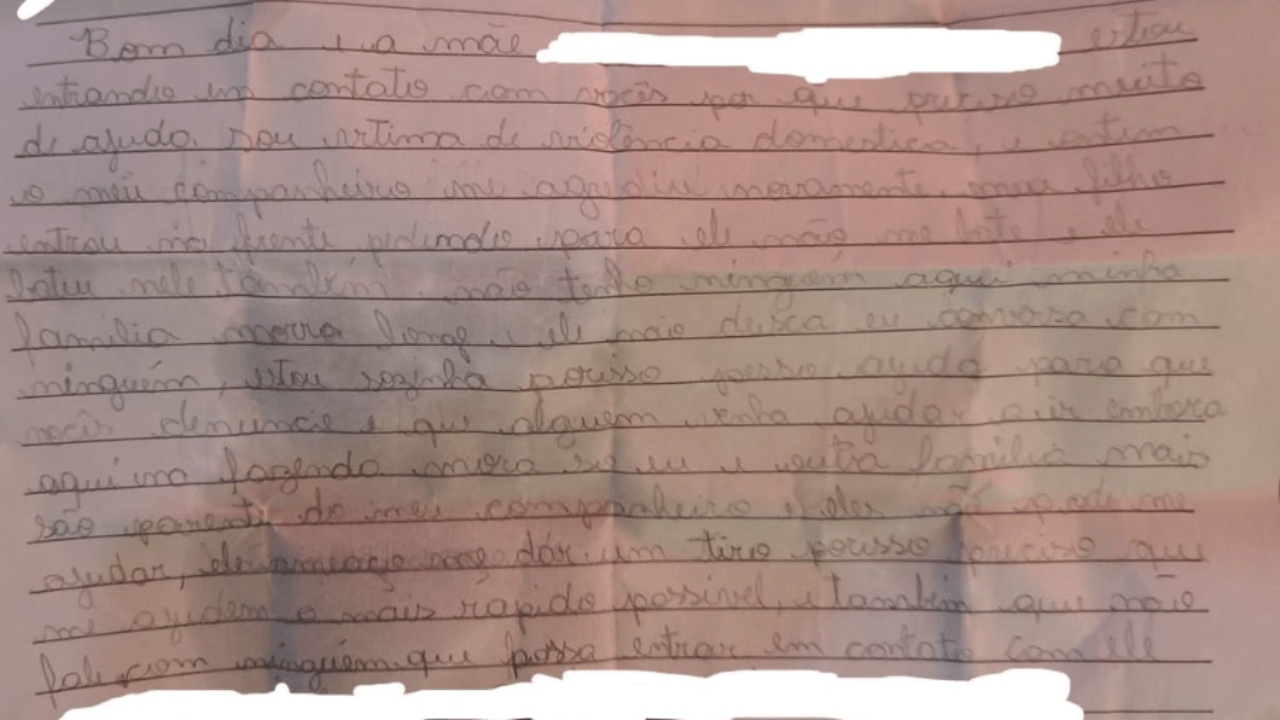 Bom dia e a mãe estou
entrando em contato com vocês por que preciso muito
de ajuda. sou vitima de violência domestica, e ontem
o meu companheiro me agrediu novamente. meu filho
entrou na frente pedindo para ele não me bate e ele
bateu nele também. não tenho ninguém aqui minha
familia morra longe e ele não deixa eu conversa com
ninguém, estou sozinha porisso pesso ajuda para que
vocês denuncie e que alguem venha ajudar a ir embora
aqui na fazenda mora so eu e outra familia mais
são parente do meu companheiro e eles não pode me
ajudar, ele ameaço me dár um tiro porisso preciso que
me ajudem o mais rápido possivel, e também que não
fale com ninguém que possa entrar em contato com ele